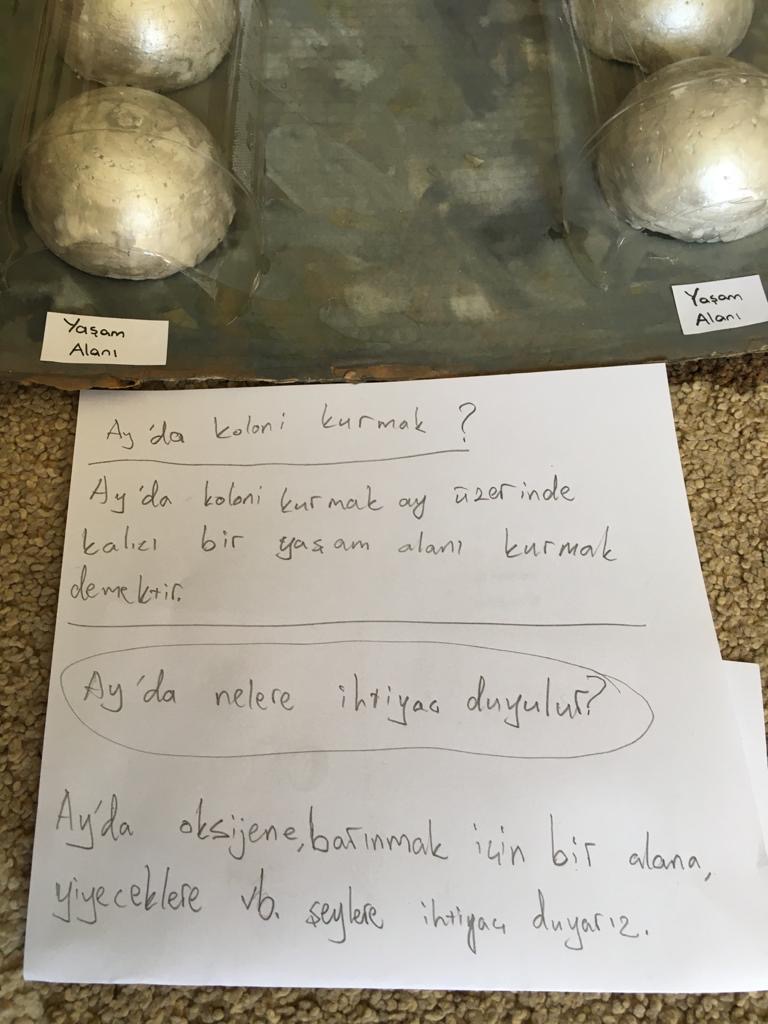 Yaşam
Alanı
Yaşam
Alanı
Ay'da koloni kurmak?
Ay'da koloni kurmak ay üzerinde
kalıcı bir yaşam alanı kurmak
demektir.
Ay'da nelere ihtiyaç duyulur?
Ay'da oksijene, barınmak için bir alana,
yiyeceklere vb. şeylere ihtiyaç duyarız.